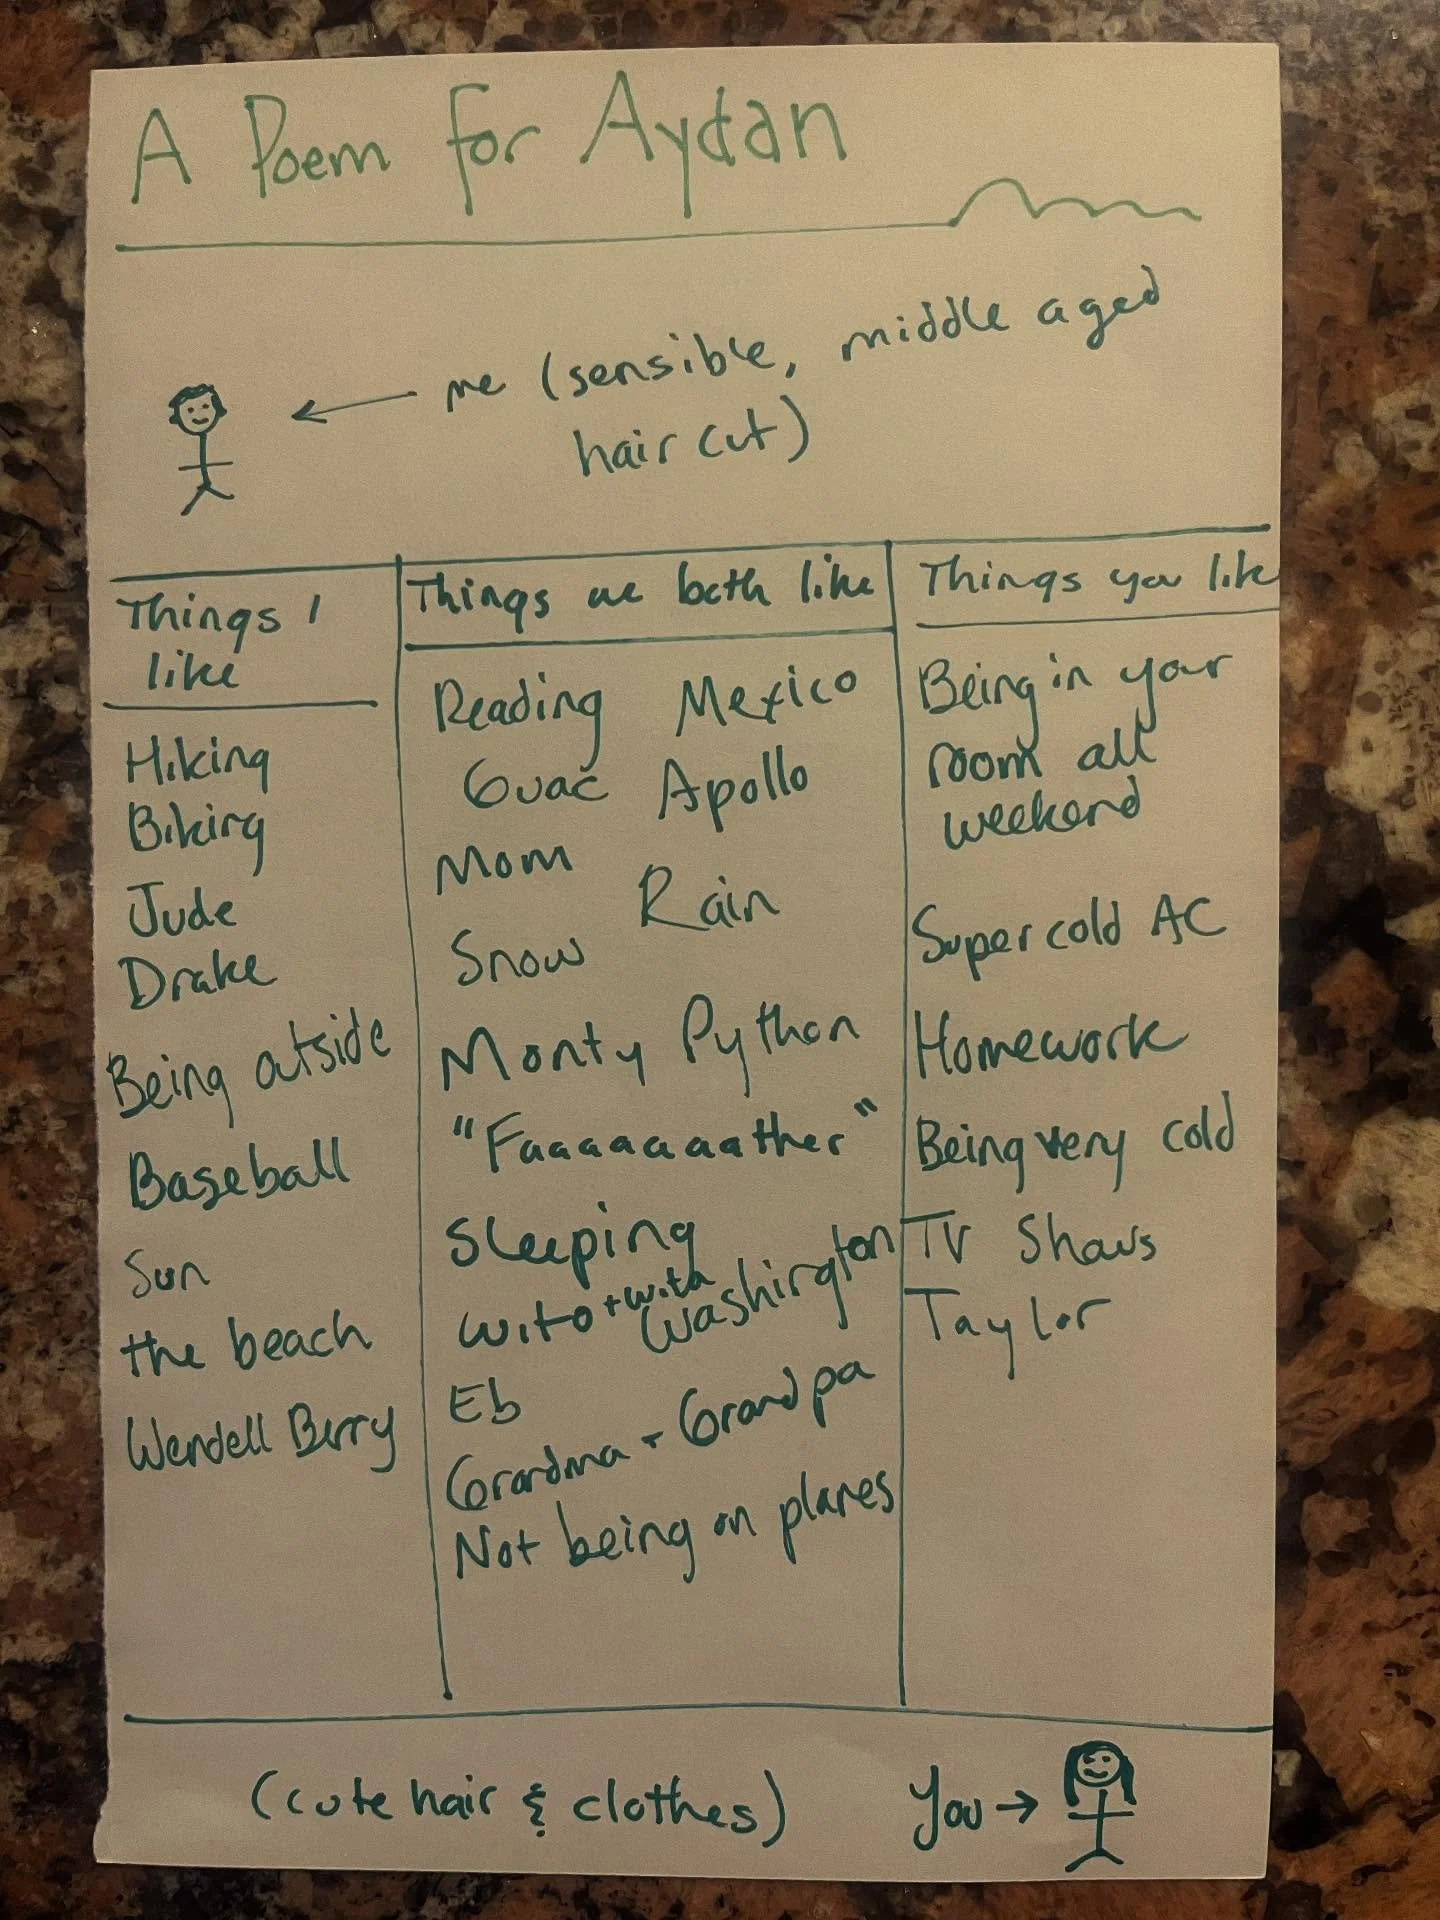 A Poem for Aydan
me (sensible, middle aged
hair cut)
Things I
like
Hiking
Biking
Jude
Drake
Being outside
Baseball
Sun
the beach
Wendell Berry
Things we both like
Reading Mexico
Guac Apollo
Mom
Rain
Snow
Monty Python
"Faaaaaaather"
Sleeping
Wito + Wita
Washington
Eb
Grandma + Grandpa
Not being on planes
Things you like
Being in your
room all
weekend
Super cold AC
Homework
Being very cold
TV Shows
Taylor
(cute hair & clothes) You